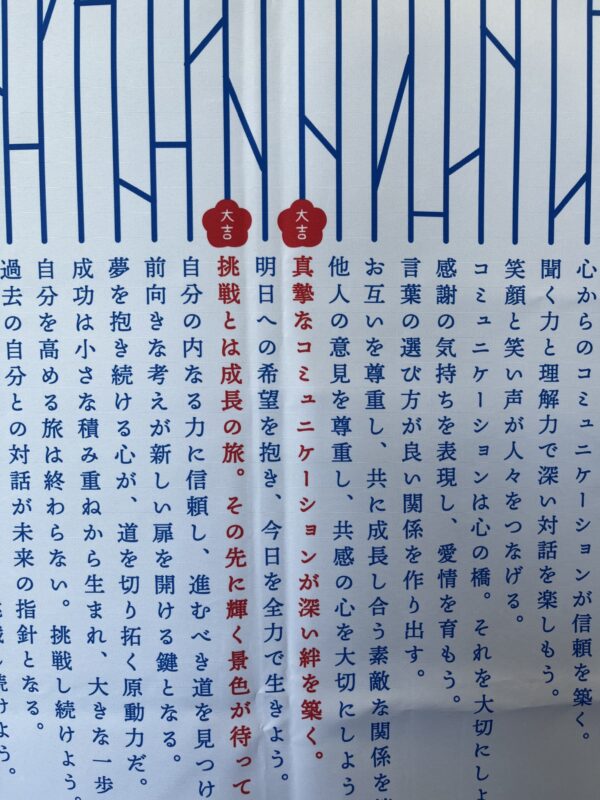 心からのコミュニケーションが信頼を築く。
聞く力と理解力で深い対話を楽しもう。
笑顔と笑い声が人々をつなげる。
コミュニケーションは心の橋。それを大切にしよ
感謝の気持ちを表現し、愛情を育もう。
言葉の選び方が良い関係を作り出す。
お互いを尊重し、共に成長し合う素敵な関係を
他人の意見を尊重し、共感の心を大切にしよう
大吉
真摯なコミュニケーションが深い絆を築く。
明日への希望を抱き、今日を全力で生きよう。
大吉
挑戦とは成長の旅。その先に輝く景色が待って
自分の内なる力に信頼し、進むべき道を見つけ
前向きな考えが新しい扉を開ける鍵となる。
夢を抱き続ける心が、道を切り拓く原動力だ。
成功は小さな積み重ねから生まれ、大きな一歩
自分を高める旅は終わらない。挑戦し続けよう。
過去の自分との対話が未来の指針となる。
続けよう。